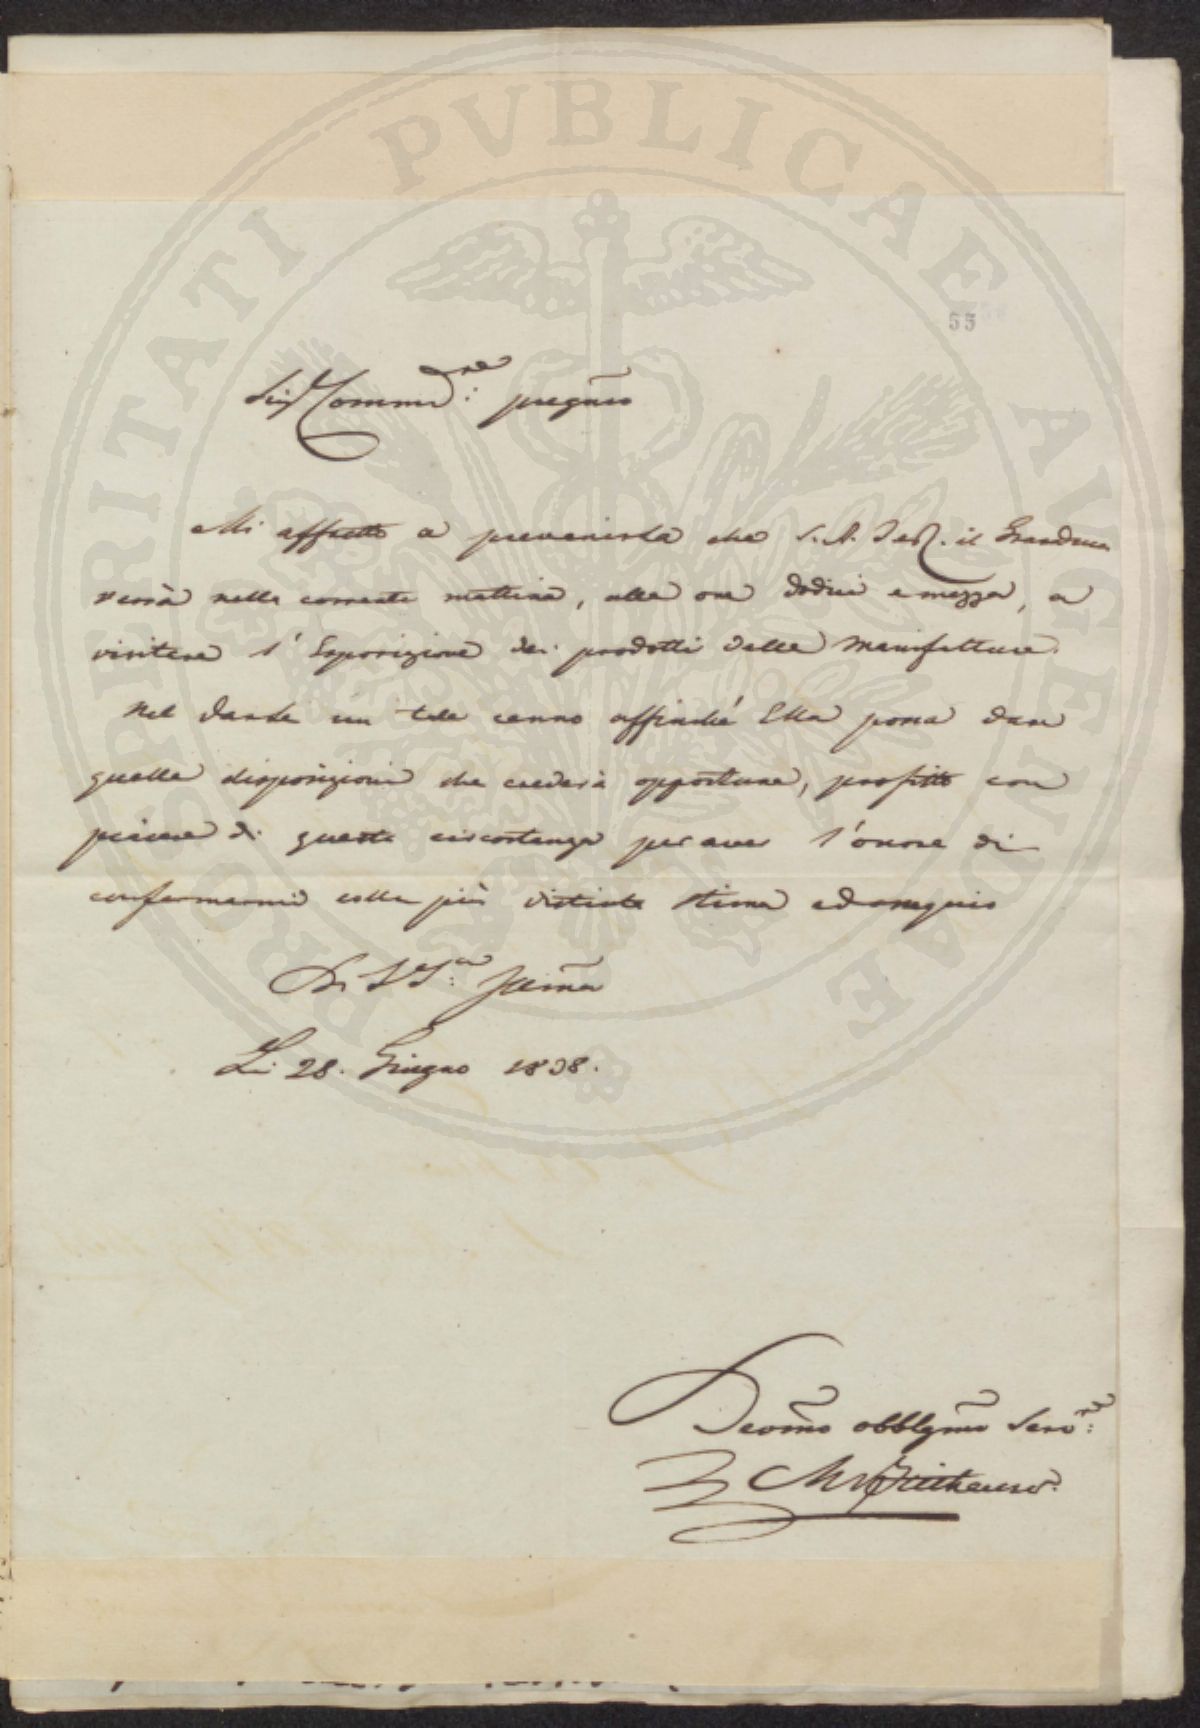 PROSPERITATI PVBLICAE AVGENDAE
55
Sig.r Commre: pregmo
Mi affretto a prevenirla che S.A. I e R. il Granduca
verrà nella corrente mattina, alle ore dodici e mezza, a
visitare l'Esposizione dei prodotti delle Manifatture.
Nel darle un tale cenno affinché Ella possa dare
quelle disposizioni che crederà opportune, profitto con
piacere di questa circostanza per aver l'onore di
confermarmi colla più distinta stima ed ossequio
Di S S.a:
Li 28. Giugno 1838.
Devomo obblgmo Serv.re: